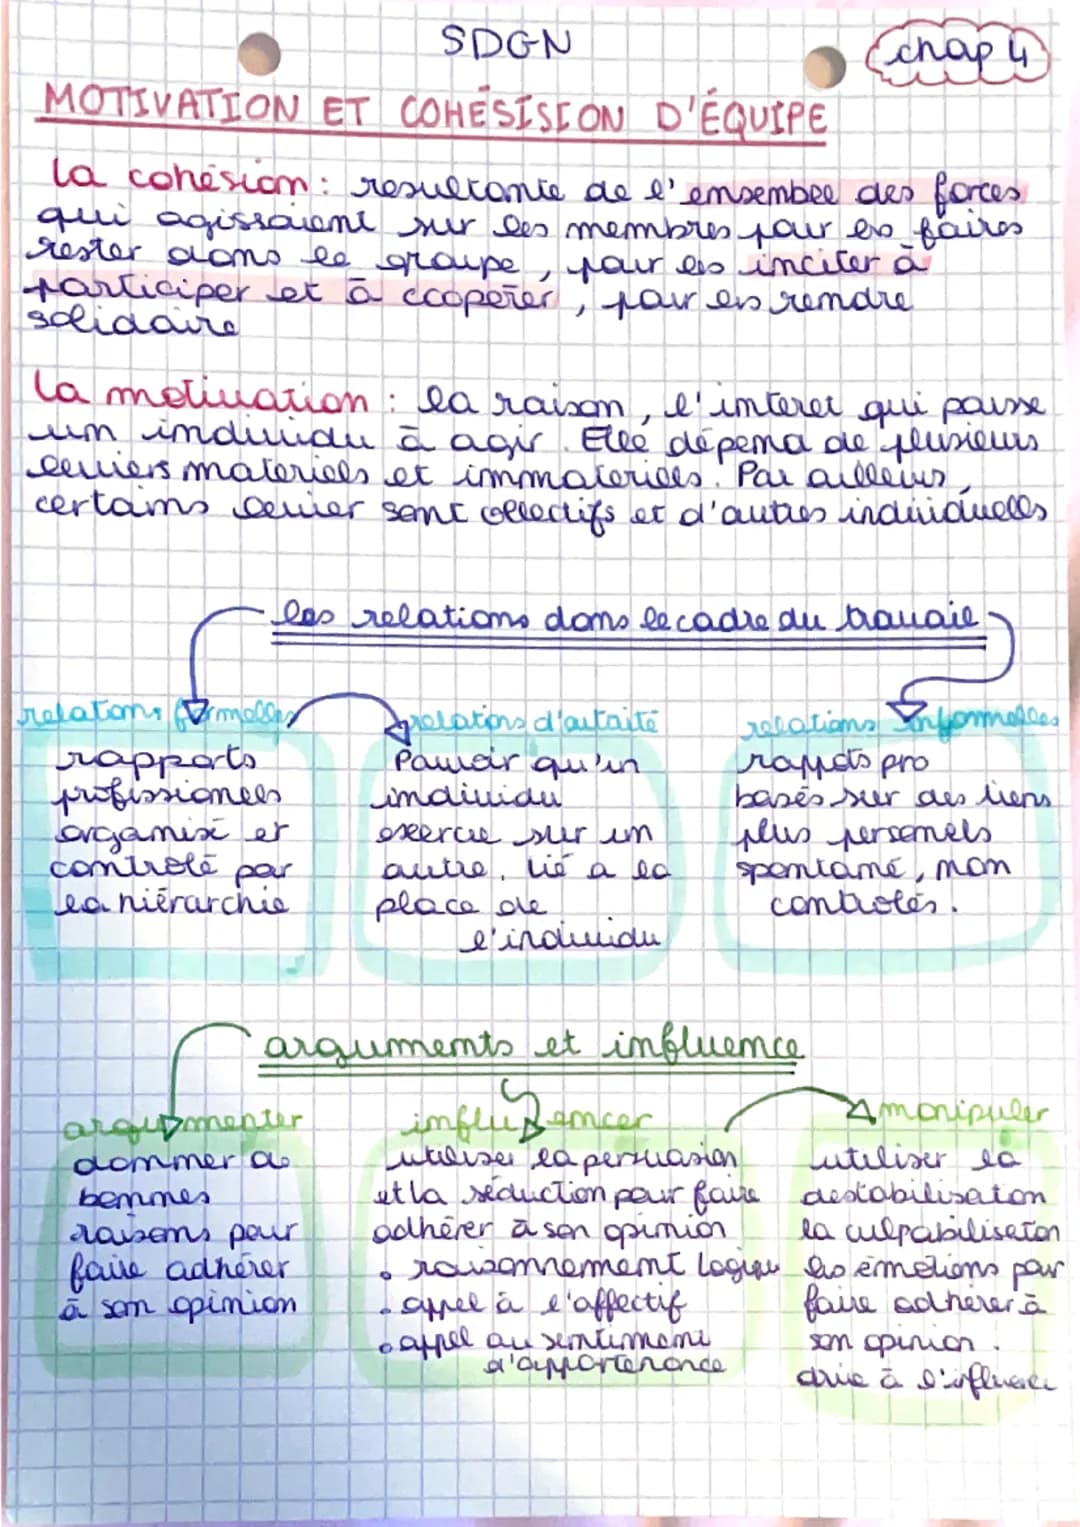 SDGN
chap 4
MOTIVATION ET COHÉSISION D'ÉQUIPE
la cohésion : resultante de l'ensemble des forces
qui agissaient sur les membres pour les faires
rester dans le groupe, pour les inciter à
participer et à ccoperer, pour les rendre
solidaire
la motivation : la raison, l'interet qui pousse
un individu à agir. Elle dépend de plusieurs
leviers materiels et immateriels. Par ailleurs,
certains levier sont collectifs et d'autres individuelles
les relations dans le cadre du travail
relations formelles
rapports
professionnels
organisé et
contrôlé par
la hiérarchie
relations d'autaité
Pouvoir qu'un
individu
exerce sur un
autre, lié a la
place de
l'individu
relations informelles
rappots pro
basés sur des liens
plus personels
spontané, non
controlés.
arguments et influence
argumenter
donner de
bonnes
raisons pour
faire adhérer
à son opinion
influencer
utiliser la persuasion
et la séduction pour faire
adhérer à son opinion
• raisonnement logique
• appel à l'affectif
• appel au sentiment
d'appartenance
manipuler
utiliser la
destabilisation
la culpabilisation
les émotions pour
faire adhérer à
son opinion.
à l'influence